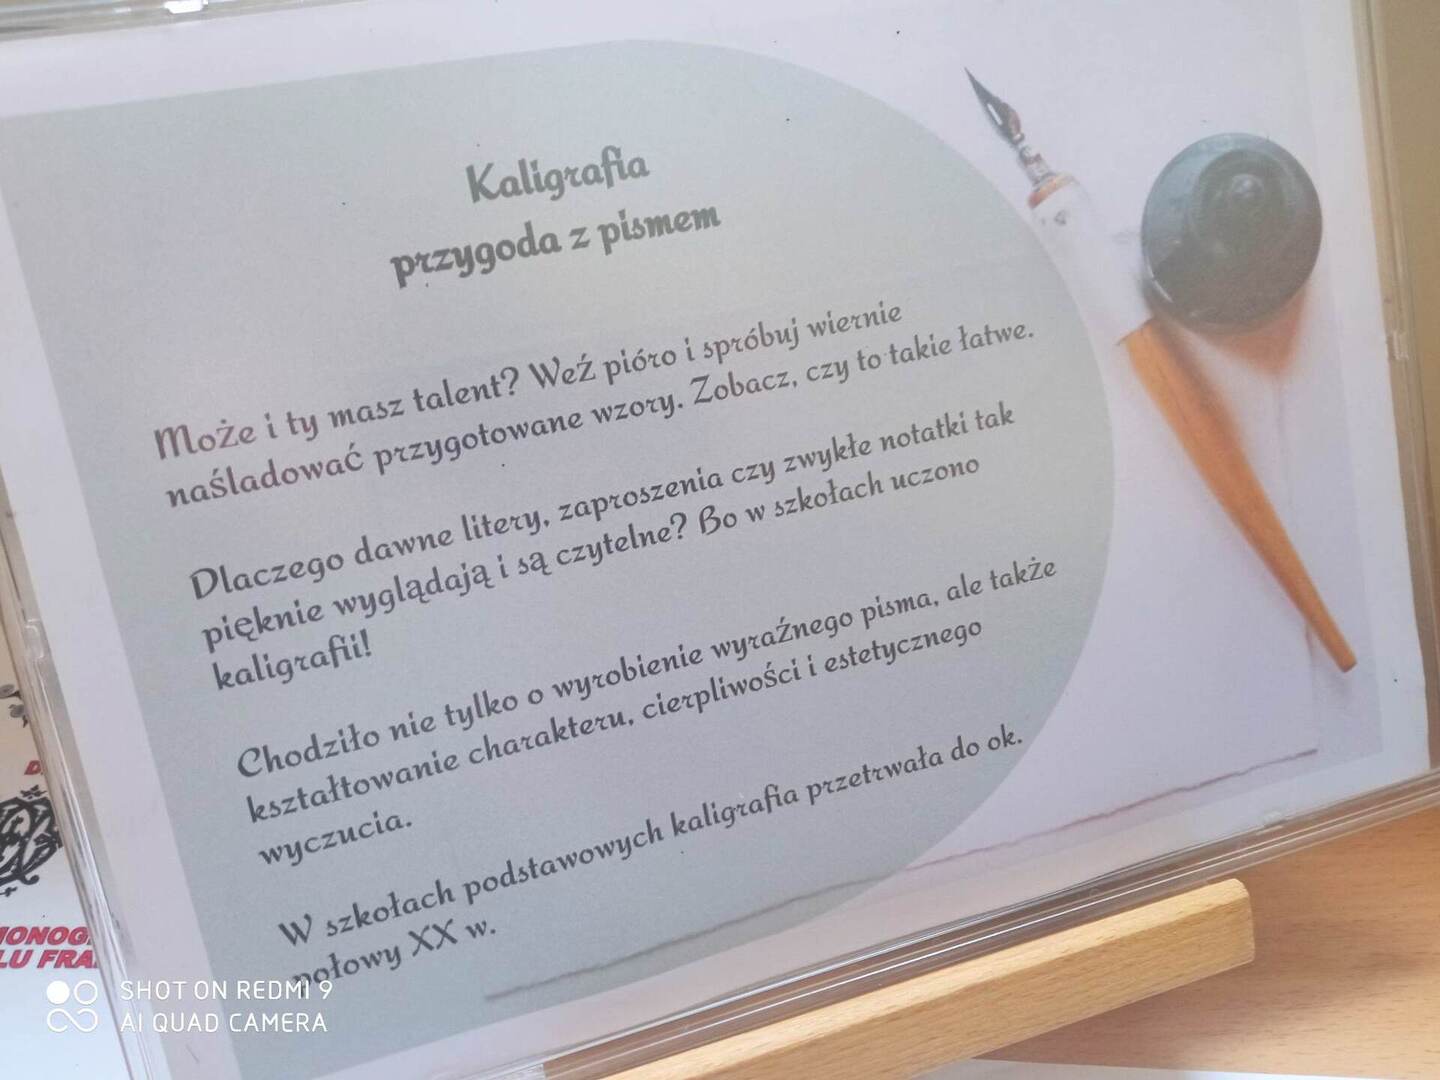 Kaligrafia
przygoda z pismem
Może i ty masz talent? Weź pióro i spróbuj wiernie
naśladować przygotowane wzory. Zobacz, czy to takie łatwe.
Dlaczego dawne litery, zaproszenia czy zwykłe notatki tak
pięknie wyglądają i są czytelne? Bo w szkołach uczono
kaligrafii!
Chodziło nie tylko o wyrobienie wyraźnego pisma, ale także
kształtowanie charakteru, cierpliwości i estetycznego
wyczucia.
W szkołach podstawowych kaligrafia przetrwała do ok.
połowy XX w.
LU
SHOT ON REDMI 9
AI QUAD CAMERA